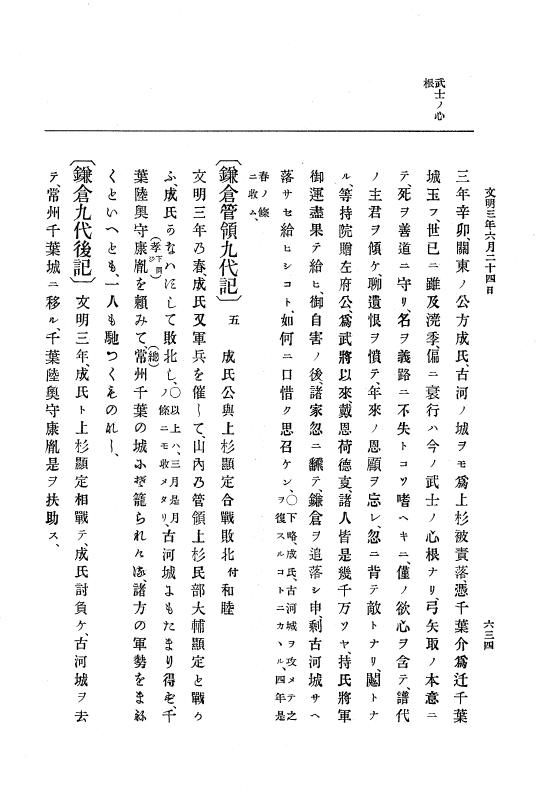 文明三年六月二十四日
六三四
武士ノ心
根
三年辛卯關東ノ公方成氏、古河ノ城ヲモ爲上杉被責落、憑千葉介爲迁千葉
城玉フ、世已ニ雖及澆季、偏ニ衰行ハ今ノ武士ノ心根ナリ、弓矢取ノ本意ニ
テ、死ヲ善道ニ守リ、名ヲ義路ニ不失トコソ嗜ヘキニ、僅ノ欲心ヲ含テ、譜代
ノ主君ヲ傾ケ、聊遺恨ヲ憤テ、年來ノ恩顧ヲ忘レ、忽ニ背テ敵トナリ、鬪トナ
ル、等持院贈左府公、爲武將以來戴恩荷德㕝、諸人皆是幾千万ソヤ、持氏將軍
御運盡果テ給ヒ、御自害ノ後、諸家忽ニ飜テ、鎌倉ヲ追落シ申、剩古河城サヘ
落サセ給ヒシコト、如何ニ口惜ク思召ケン、○下略、成氏、古河城ヲ攻メテ之ヲ復スルコトニカヽル、四年是
春ノ條
ニ收ム、
〔鎌倉管領九代記〕五 成氏公與上杉顯定合戰敗北付和睦
文明三年乃春、成氏又軍兵を催して、山內乃管領上杉民部大輔顯定と戰ゟ
ふ、成氏うなハにして敗北し、○以上ハ、三月是月ノ條ニモ收メタリ、古河城よもたまり得を、千
葉陸奧守康胤(孝下同ジ)を賴みて、常州(總)千葉の城ふ楯籠られ〱る、諸方の軍勢をまね
くといへとも、一人も馳つくものれし、
〔鎌倉九代後記〕文明三年、成氏ト上杉顯定相戰テ、成氏討負ケ、古河城ヲ去
テ、常州千葉城ニ移ル、千葉陸奧守康胤是ヲ扶助ス、